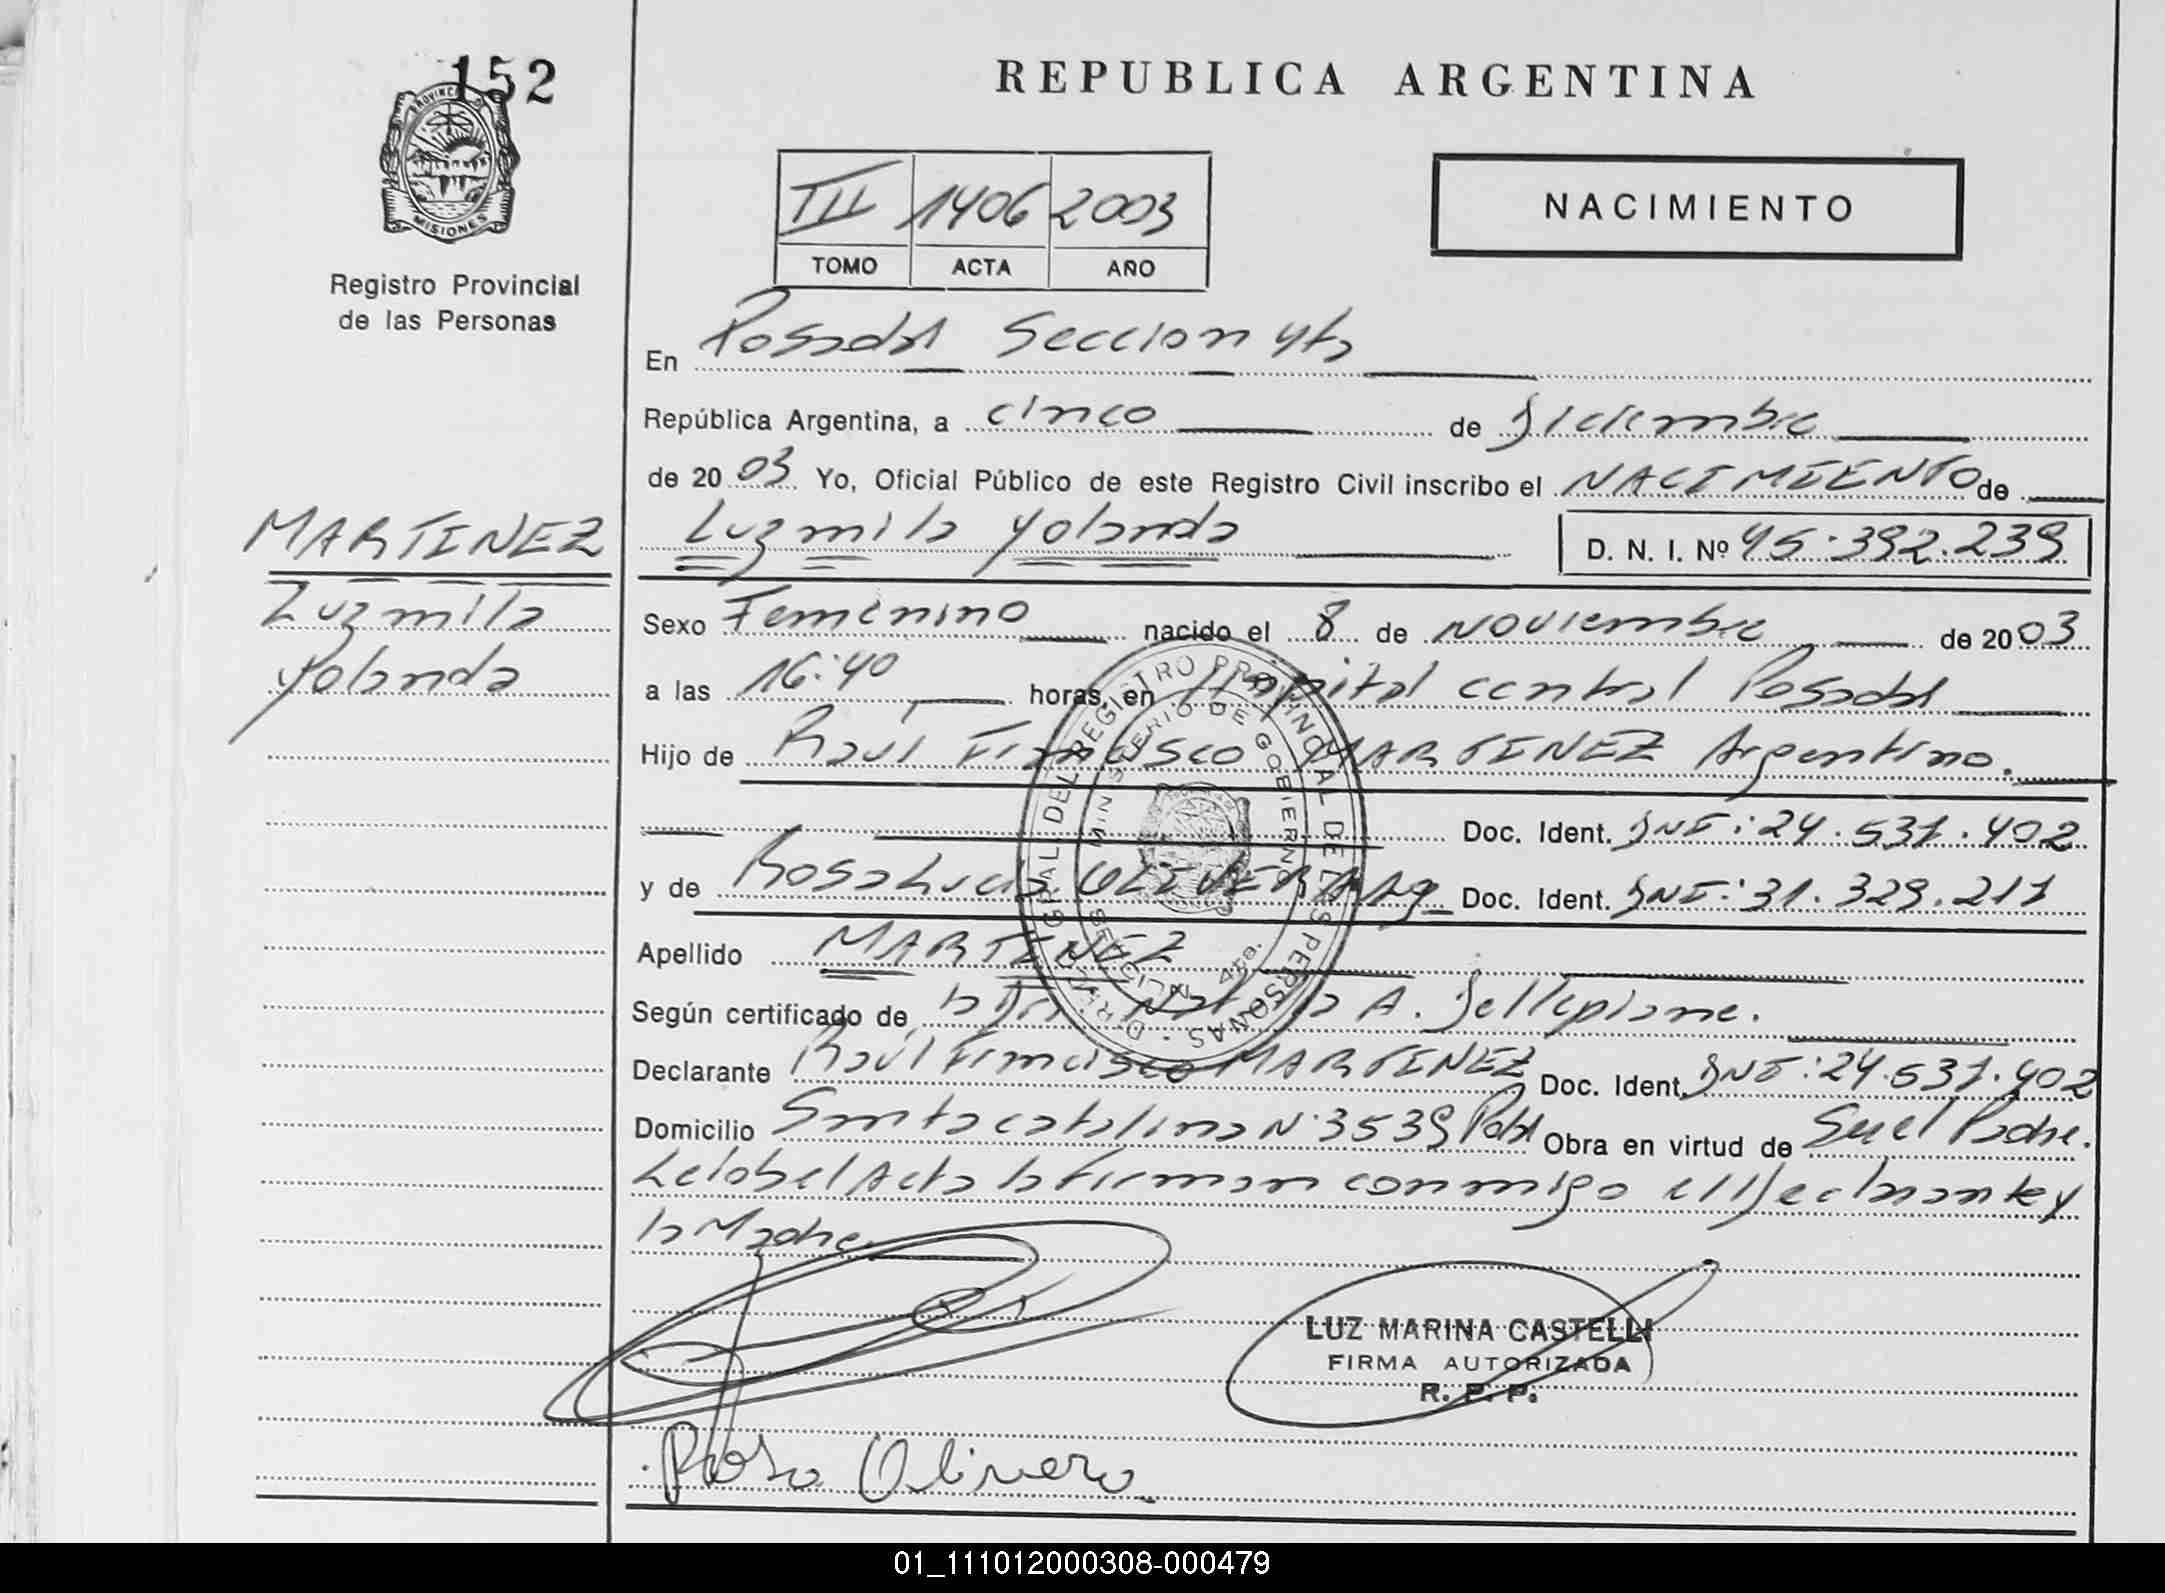 152
PROVINCIA DE
MISIONES
Registro Provincial
de las Personas
MARTINEZ
Luzmila
Yolanda
REPUBLICA ARGENTINA
III 1406 2003
TOMO ACTA AÑO
NACIMIENTO
En Posadas Seccion 4ta
República Argentina, a cinco de Diciembre
de 2003 Yo, Oficial Público de este Registro Civil inscribo el NACIMIENTO de
Luzmila Yolanda D. N. I. Nº 45.392.239
Sexo Femenino nacido el 8 de Noviembre de 2003
a las 16:40 horas, en Hospital central Posadas
Hijo de Raúl Francisco MARTINEZ Argentino.
Doc. Ident. DNI: 24.531.402
y de Rosa Lucia OLIVERA Arg Doc. Ident. DNI: 31.329.211
Apellido MARTINEZ
Según certificado de la Dra A. Dellepiane.
Declarante Raúl Francisco MARTINEZ Doc. Ident. DNI: 24.531.402
Domicilio Santa catalina N° 3539 Pdas Obra en virtud de Ser el Padre.
Leida el Acta la firman conmigo el Declarante y
la Madre
DIREC. GRAL. DEL REGISTRO PROVINCIAL DE LAS PERSONAS
MINISTERIO DE GOBIERNO
4ta.
LUZ MARINA CASTELLI
FIRMA AUTORIZADA
R. P. P.
Rosa Olivera
01_111012000308-000479